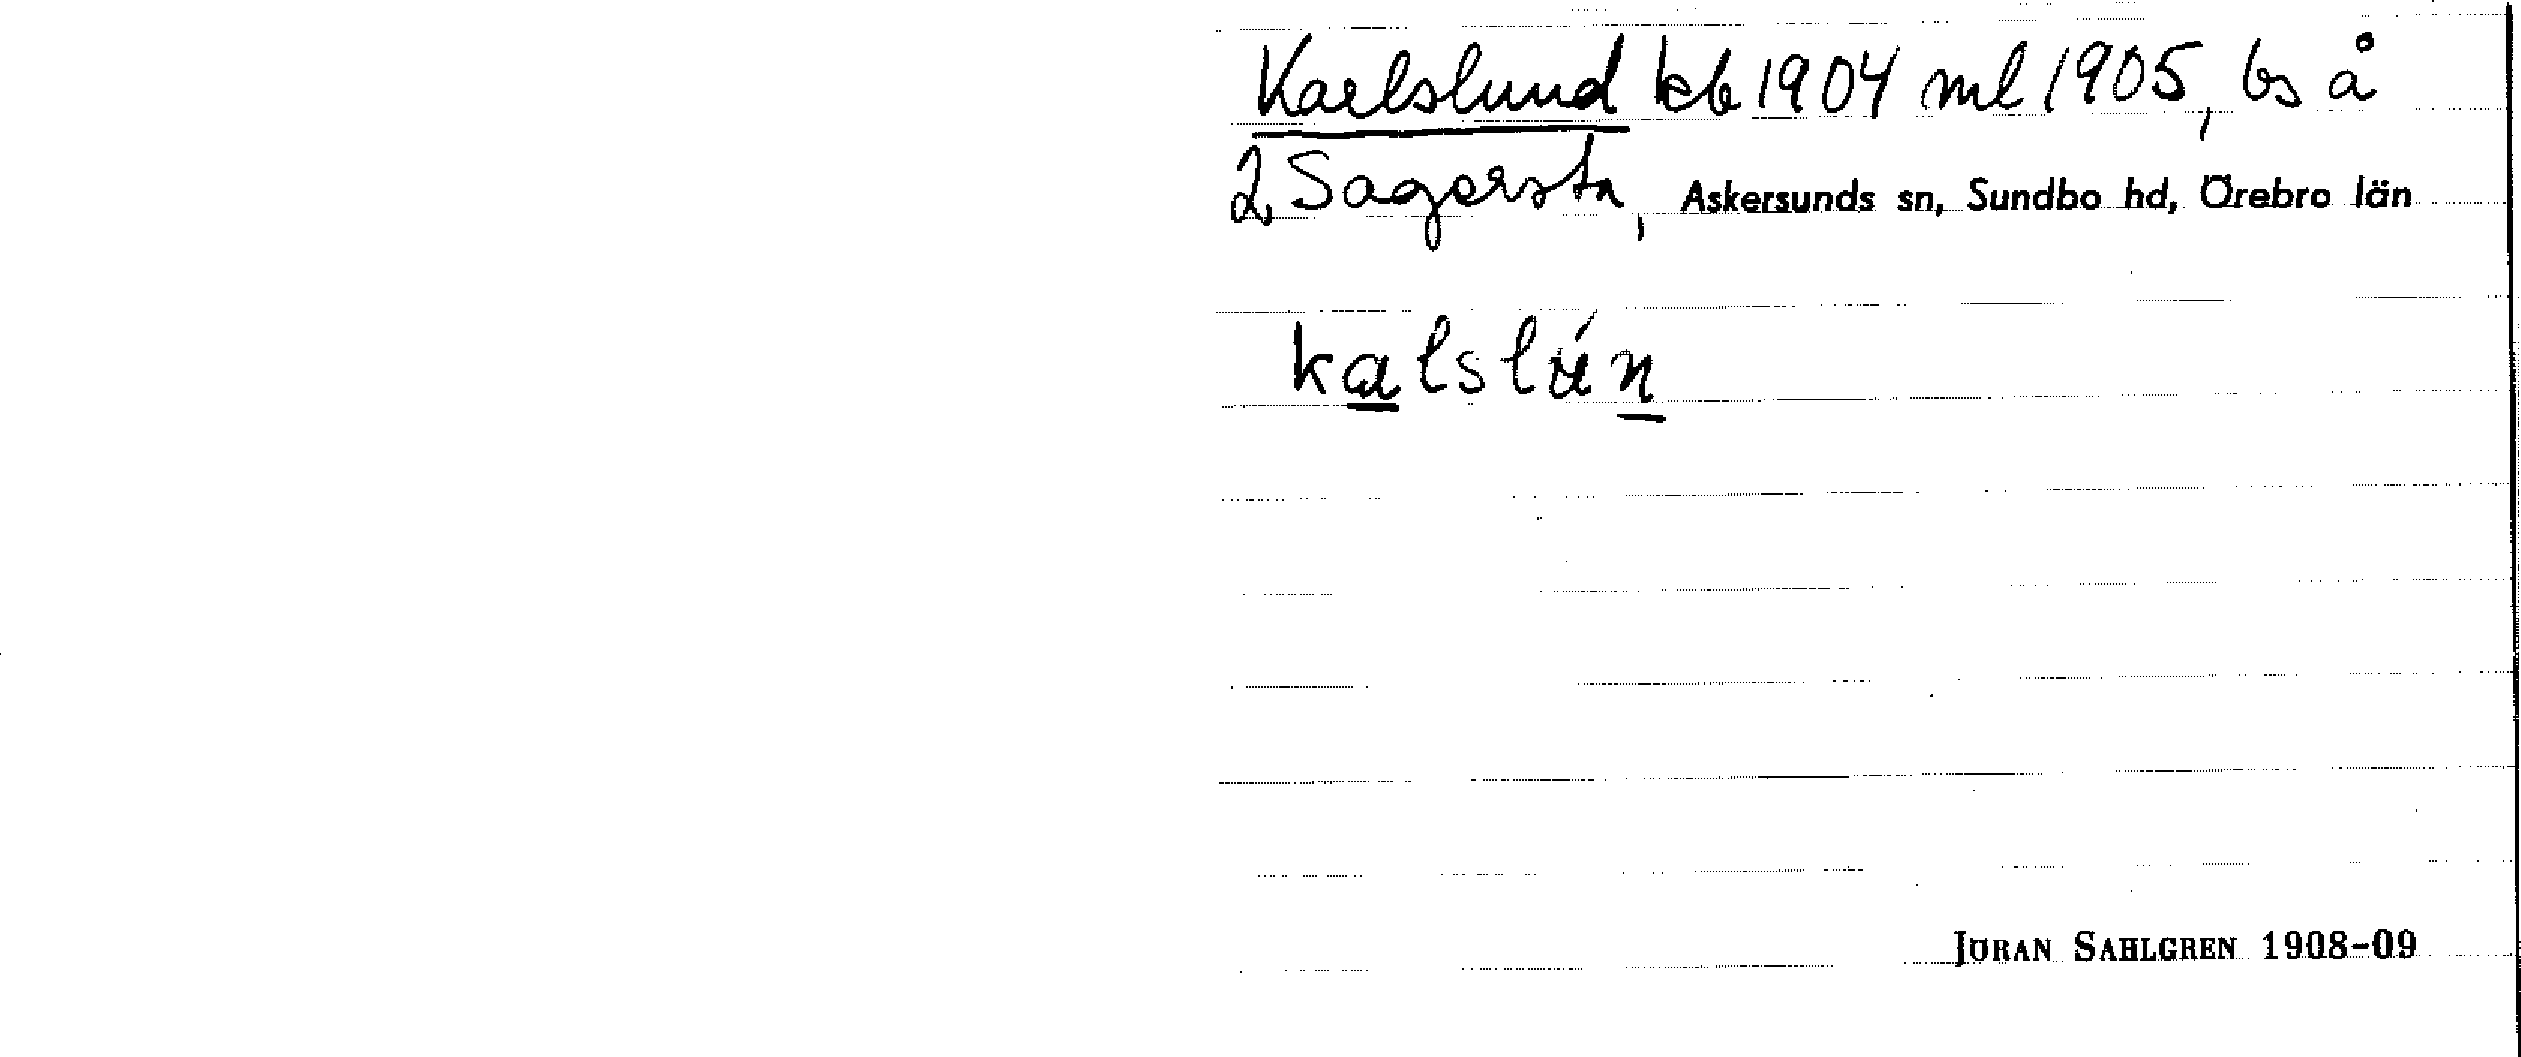 Karlslund kb 1904 ml 1905, bs å
2 Sagersta, Askersunds sn, Sundbo hd, Örebro län
kalslún
JÖRAN SAHLGREN 1908-09